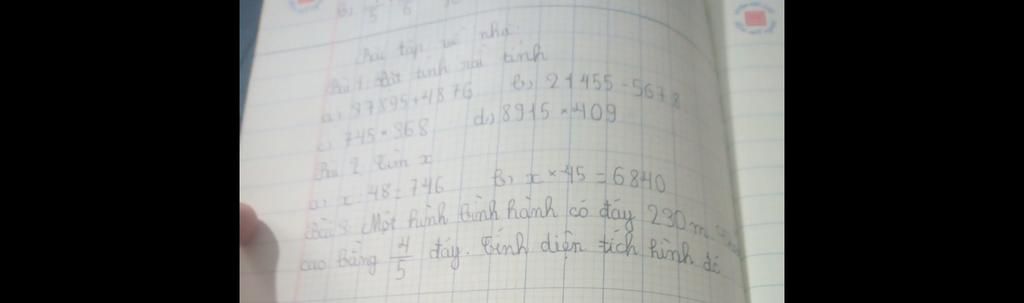 B, 5 6
Bài tập về nhà:
Bài 1: Đặt tính rồi tính
a, 37895+4876 b, 21455-5678
c, 745×368 d, 8915×409
Bài 2 Tìm x
a, x : 48 = 746 b, x × 45 = 6840
Bài 3: Một hình bình hành có đáy 230 m
cao bằng 4/5 đáy. Tính diện tích hình đó